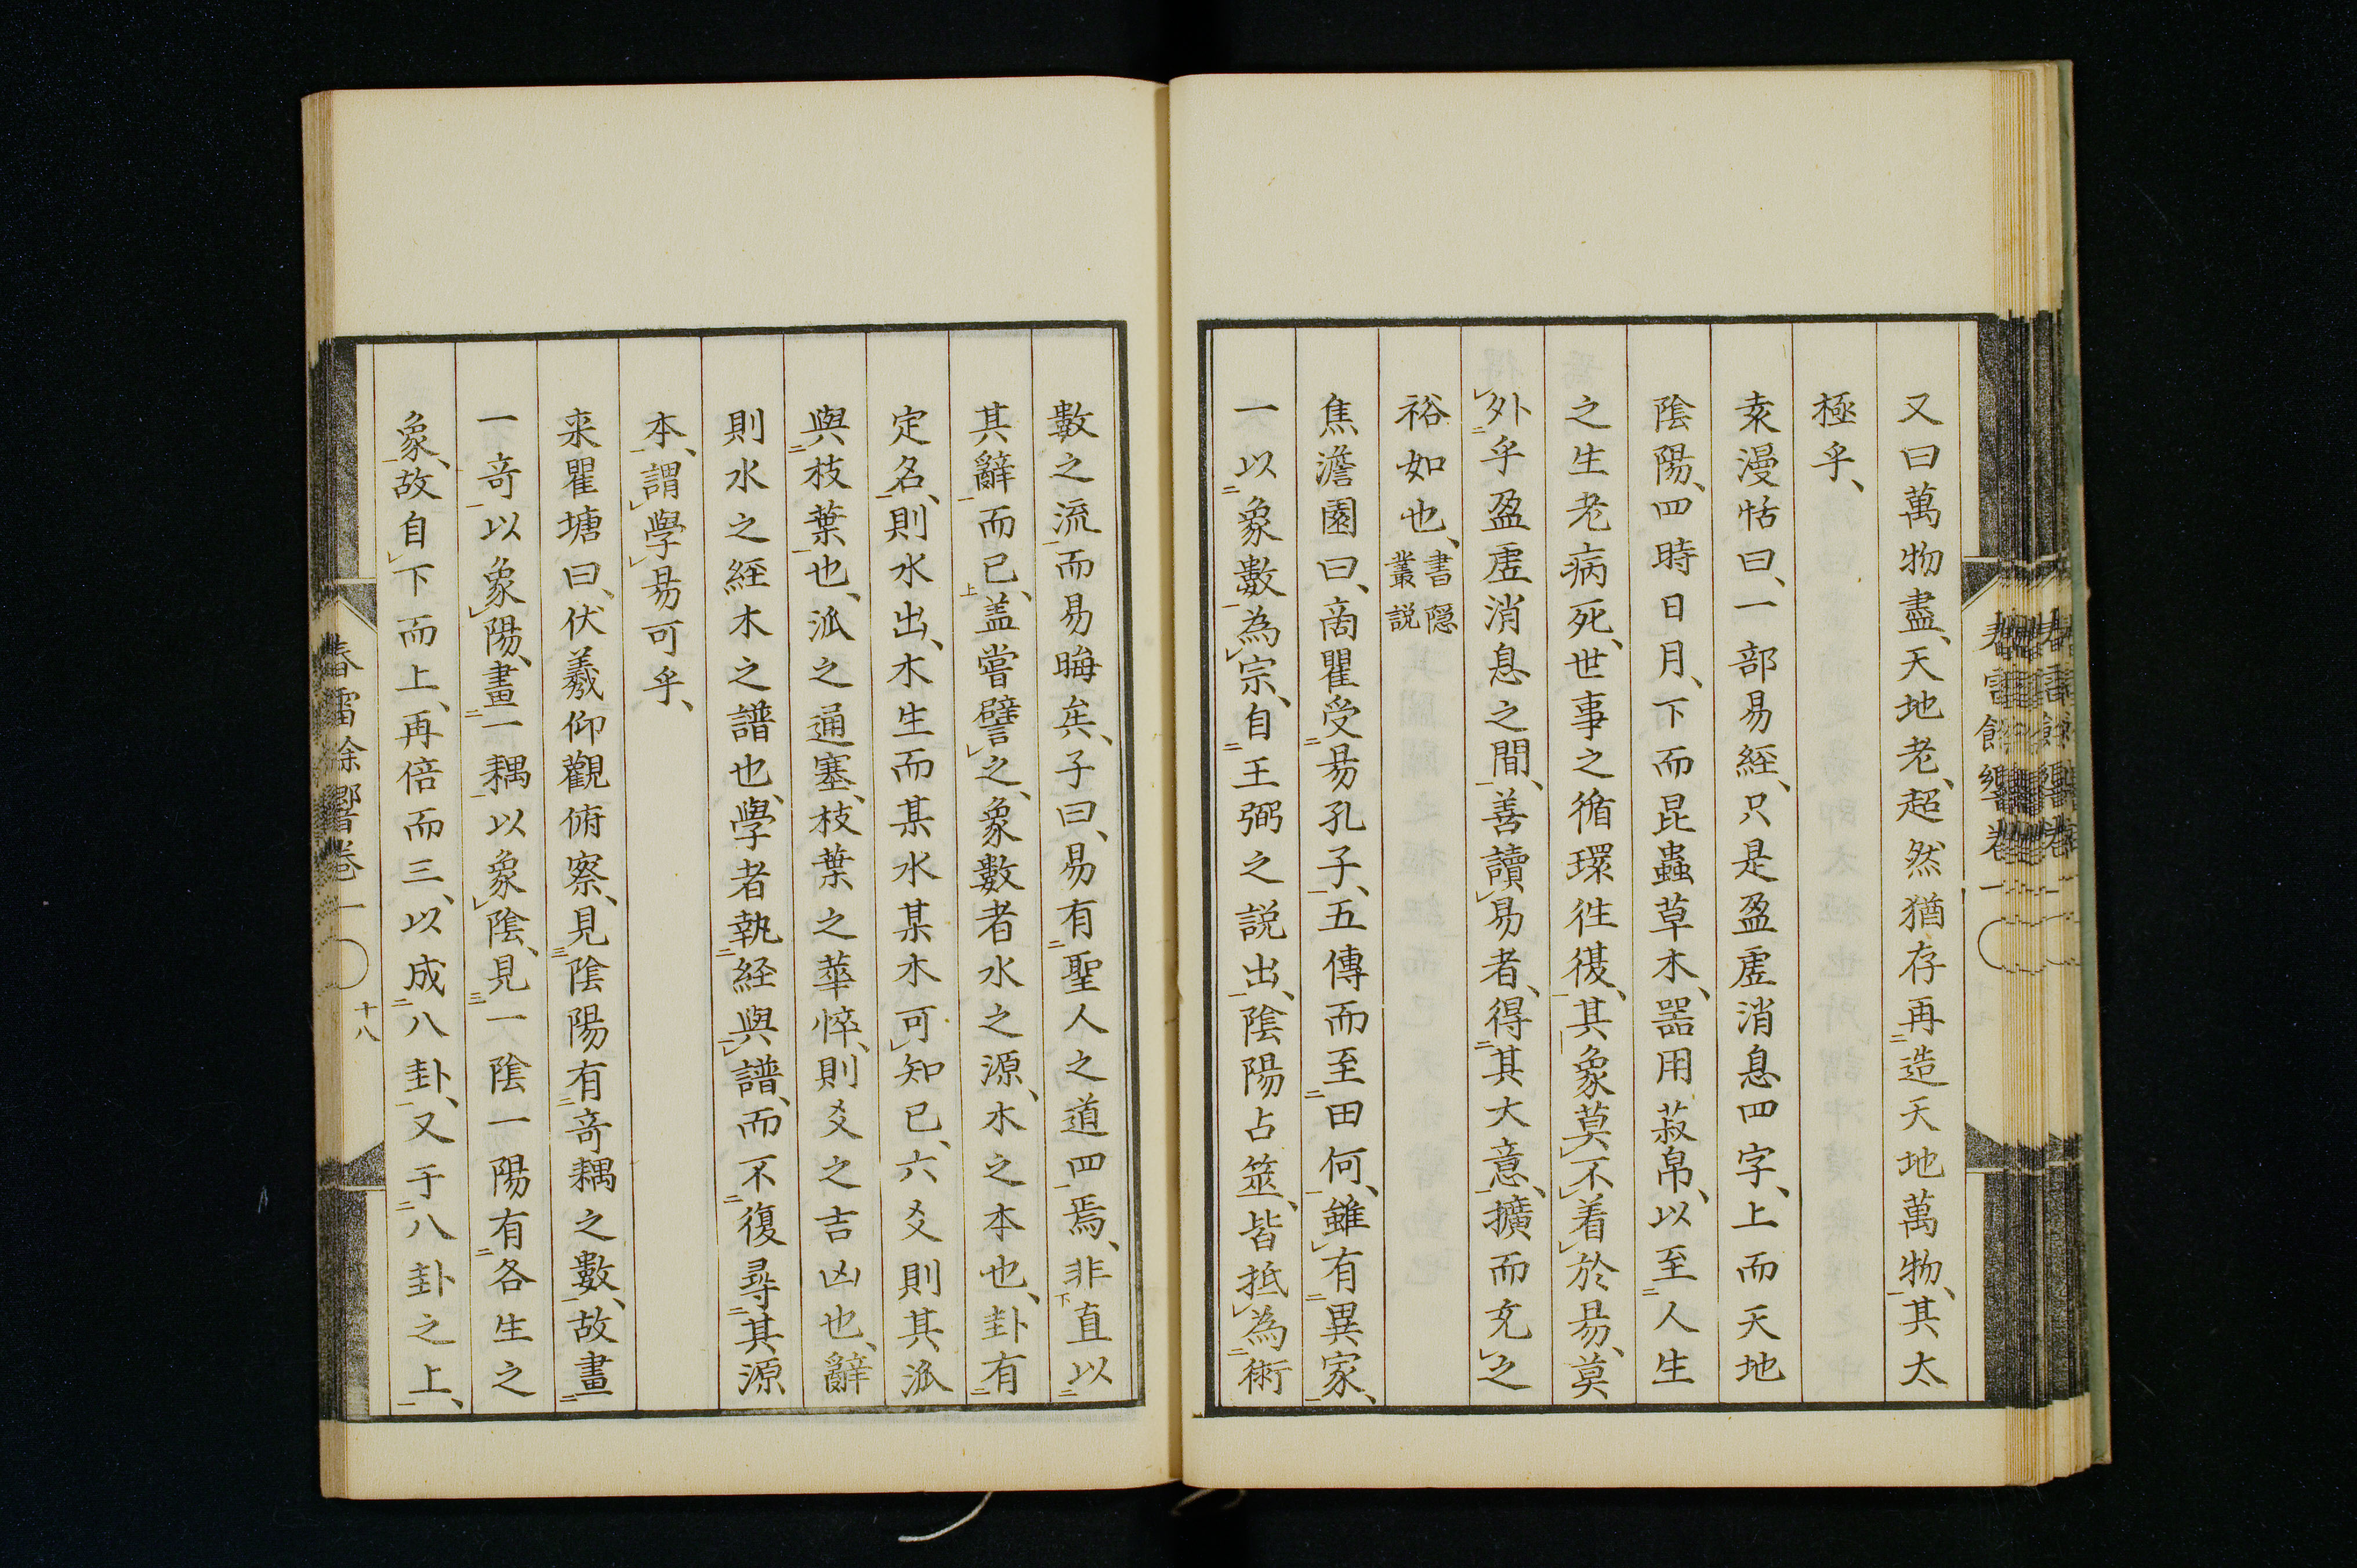 又曰萬物盡、天地老、超然猶存再二造天地萬物一、其太
極乎、
袁漫恬曰、一部易経、只是盈虗消息四字、上而天地
陰陽、四時日月、下而昆蟲草木、噐用菽帛、以至二人生
之生老病死、世事之循環徃復一、其象莫不着於易、莫
外二乎盈虗消息之間一、善讀易者、得二其大意一、擴而充之
裕如也、書隠叢説
焦澹園曰、商瞿受二易孔子一、五傳而至二田何一、雖有二異家一、
一以二象數一為宗、自二王弼之説出一、陰陽占筮、皆抵為二術
數之流一而易晦矣、子曰、易有二聖人之道四一焉、非下直以二
其辭一而已上、盖嘗譬之、象數者水之源、木之本也、卦有二
定名一、則水出、木生而某水某木可知已、六爻則其派
與二枝葉一也、派之通塞、枝葉之華悴、則爻之吉凶也、辭
則水之経木之譜也、學者執二経與一譜、而不二復尋二其源
本一、謂學易可乎、
来瞿塘曰、伏羲仰觀俯察、見三陰陽有二奇耦之數一、故畫二
一奇一以象陽、畫二一耦一以象陰、見三一陰一陽有二各生之
象一、故自下而上、再倍而三、以成二八卦一、又于二八卦之上一、
春雷餘響卷一
十八